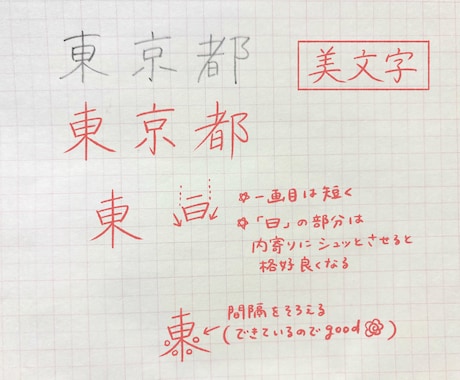 東京都
美文字
東京都
東 日
✿一画目は短く
✿「日」の部分は
内寄りにシュッとさせると
格好良くなる
東
間隔をそろえる
(できているのでgood)